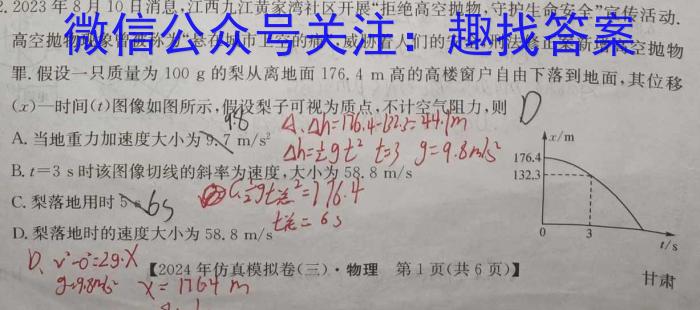 2. 2023 年 8 月 10 日消息,江西九江黄家湾社区开展“拒绝高空抛物,守护生命安全”宣传活动.
微信公众号关注:趣找答案
高空抛物现象曾被称为“悬在城市上空的痛” 高空抛物
罪. 假设一只质量为 100 g 的梨从离地面 176.4 m 高的高楼窗户自由下落到地面,其位移
(x)—时间(t)图像如图所示,假设梨子可视为质点,不计空气阻力,则
D
9.8
A. 当地重力加速度大小为 9.7 m/s²
A、Δh=176.4-132.3=44.1m
Δh=½gt² t=3 g=9.8m/s²
B. t=3 s 时该图像切线的斜率为速度,大小为 58.8 m/s
C. 梨落地用时 5 s 6s
C. ½gt总²=176.4
t总=6s
D. 梨落地时的速度大小为 58.8 m/s
D、v²-0²=2g·X
g=9.8m/s² x=176.4 m
x/m
176.4
132.3
0
3
t/s
【2024 年仿真模拟卷(三)·物理 第 1 页(共 6 页)】
甘肃